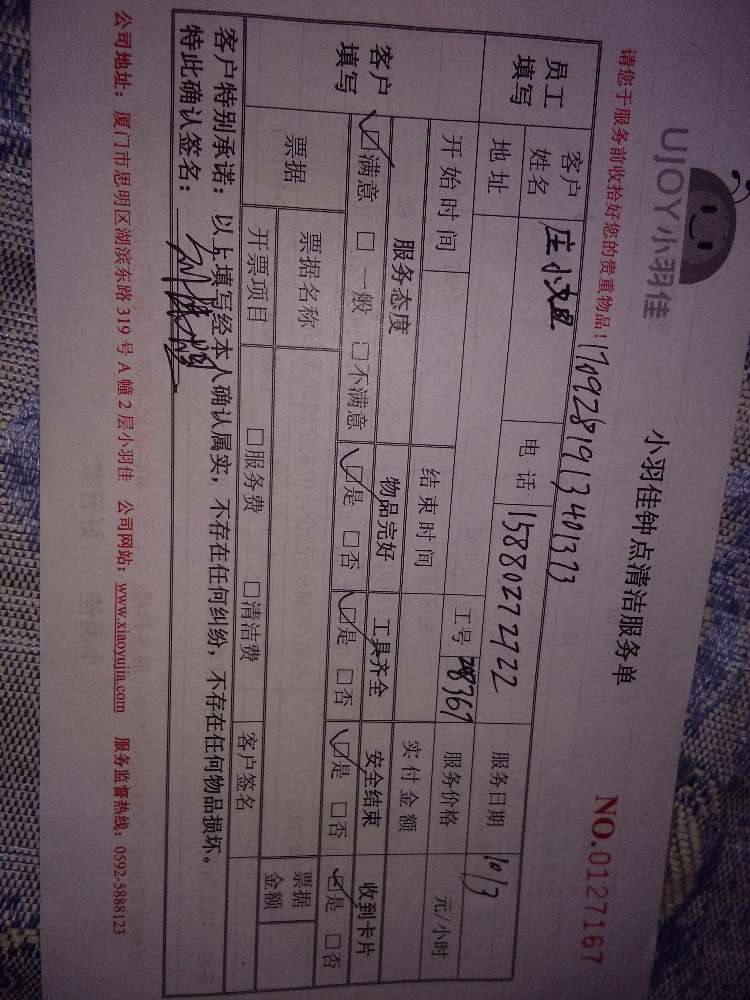 UJOY小羽佳
小羽佳钟点清洁服务单
NO.0127167
请您于服务前收拾好您的贵重物品!
1709281913401373
员工填写 客户姓名 庄小姐 电话 15880272722 服务日期 10/3
地址 工号 28367 服务价格 元/小时
开始时间 结束时间 实付金额
客户填写 服务态度 物品完好 工具齐全 安全结束 收到卡片
☑满意 □一般 □不满意 ☑是 □否 ☑是 □否 ☑是 □否 ☑是 □否
票据 票据名称 票据金额
开票项目 □服务费 □清洁费 客户签名
客户特别承诺:以上填写经本人确认属实,不存在任何纠纷,不存在任何物品损坏。
特此确认签名:
公司地址:厦门市思明区湖滨东路 319 号 A 幢 2 层小羽佳 公司网站:www.xiaoyujia.com 服务监督热线:0592-5888123